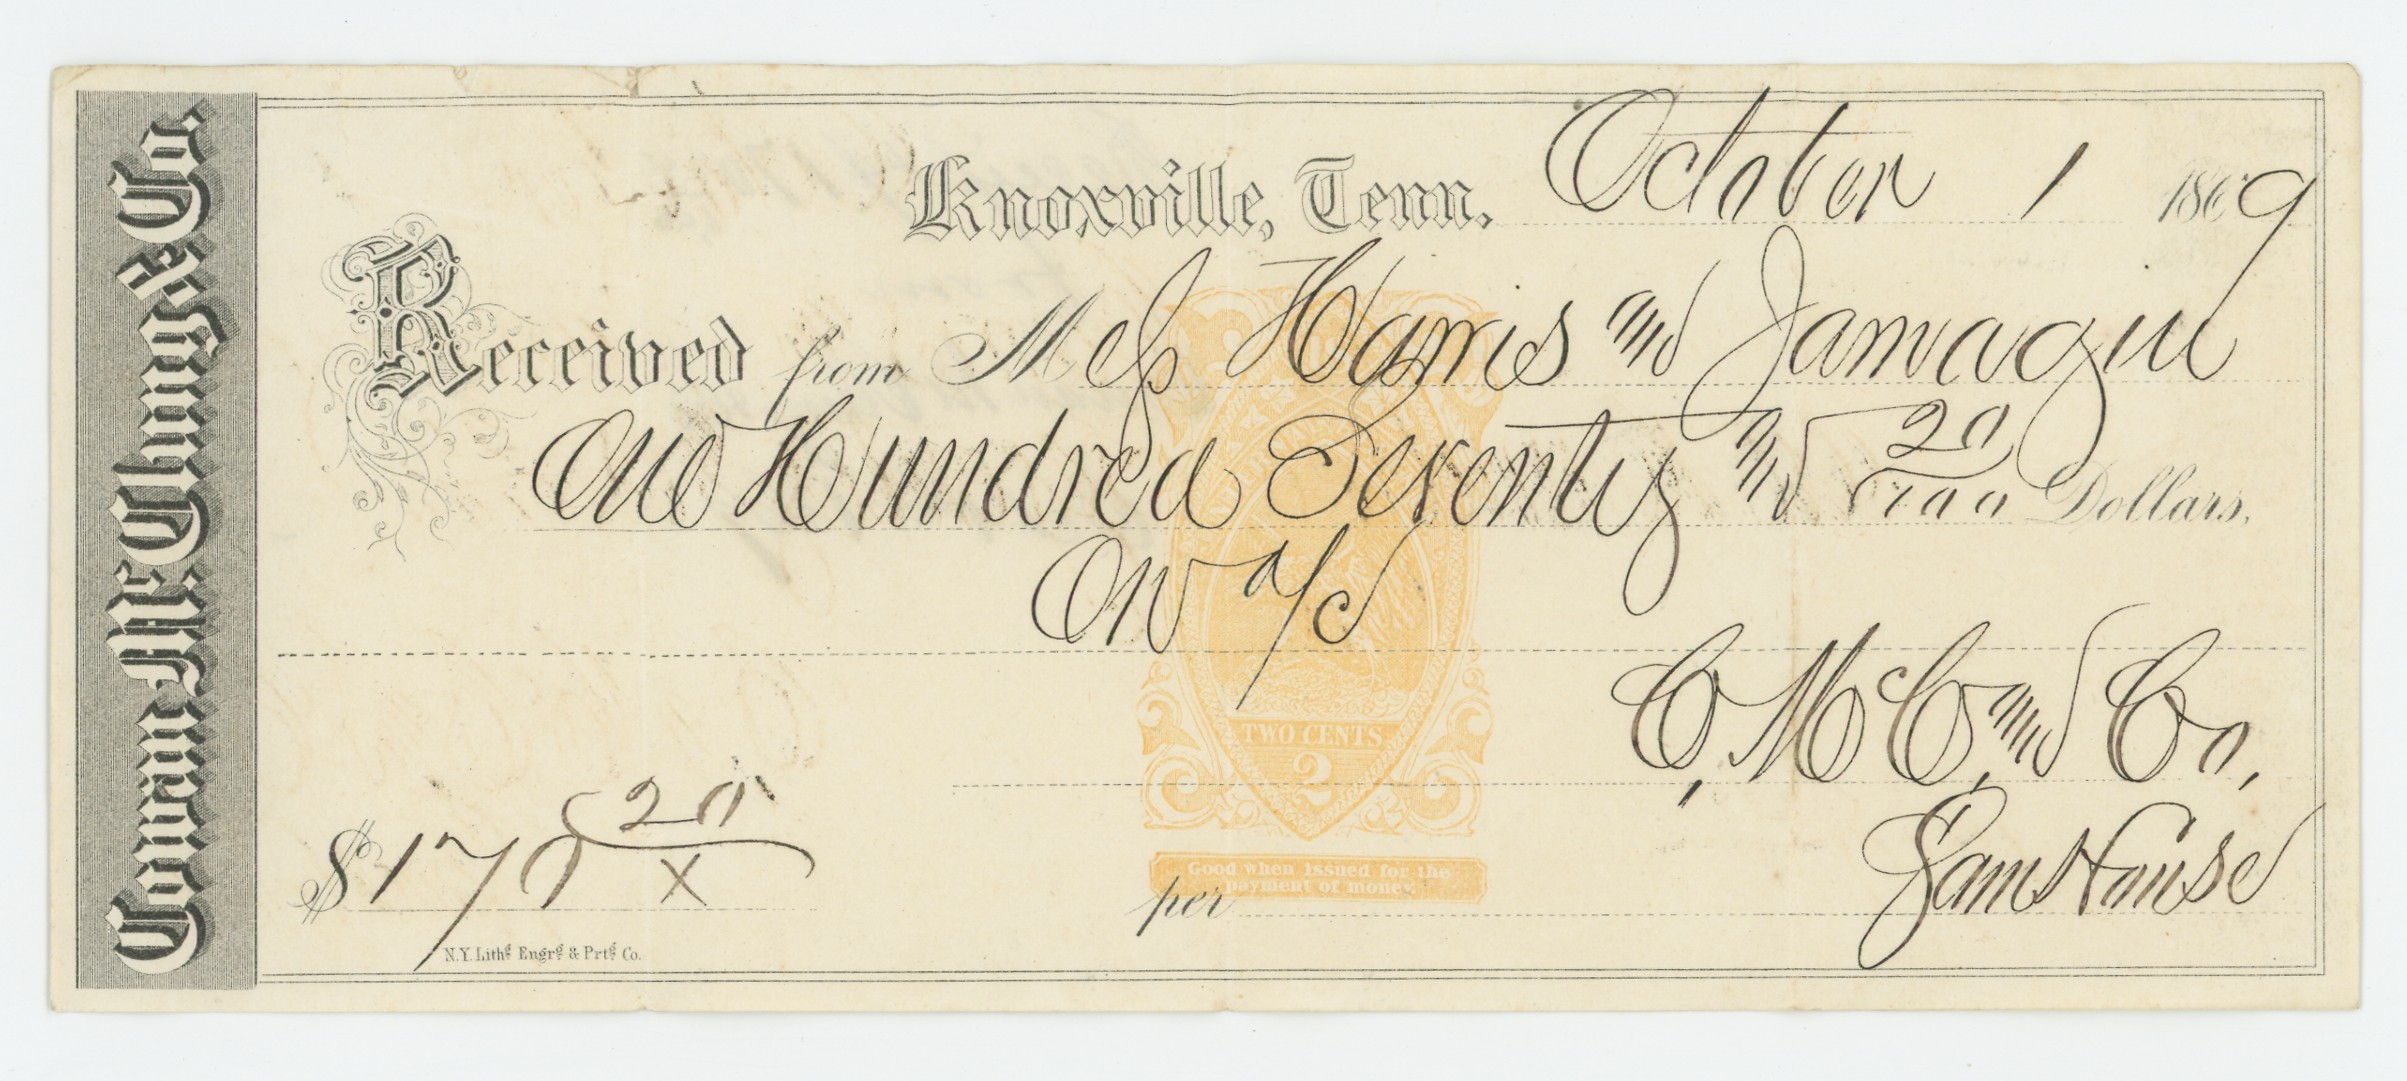 Cowan McClung & Co.
Knoxville, Tenn. October 1 1869
Received from Mess Harris and Jarnagin
One Hundred Seventy and 20/100 Dollars.
On a/c
C, McC, and Co,
$170 20/x
per Sam House
TWO CENTS
2
Good when issued for the
payment of money.
N.Y. Lithg. Engrg. & Prtg. Co.